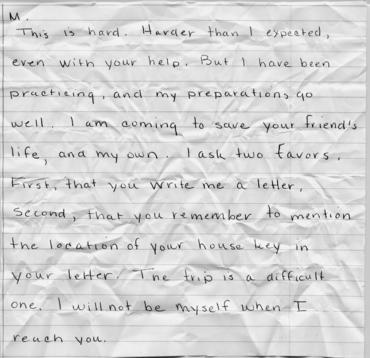 M.
This is hard. Harder than I expected,
even with your help. But I have been
practicing, and my preparations go
well. I am coming to save your friend's
life, and my own. I ask two favors.
First, that you write me a letter,
Second, that you remember to mention
the location of your house key in
your letter. The trip is a difficult
one. I will not be myself when I
reach you.